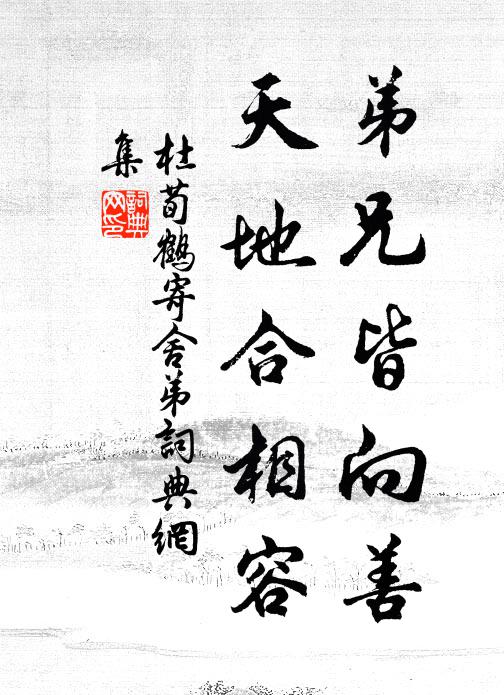 弟兄皆向善
天地合相容
杜荀鶴寄舍弟詞典網
集
詞典
网印